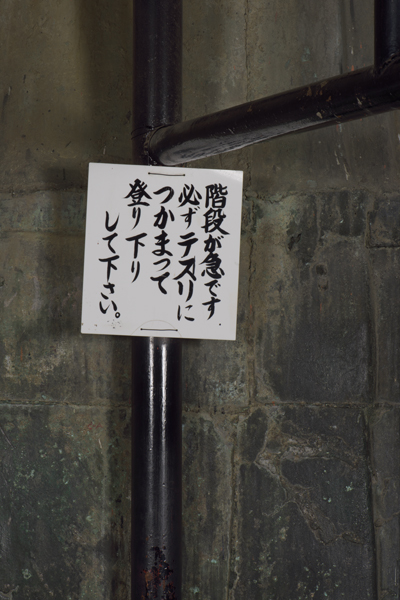 階段が急です
必ずテスリに
つかまって
登り下り
して下さい。